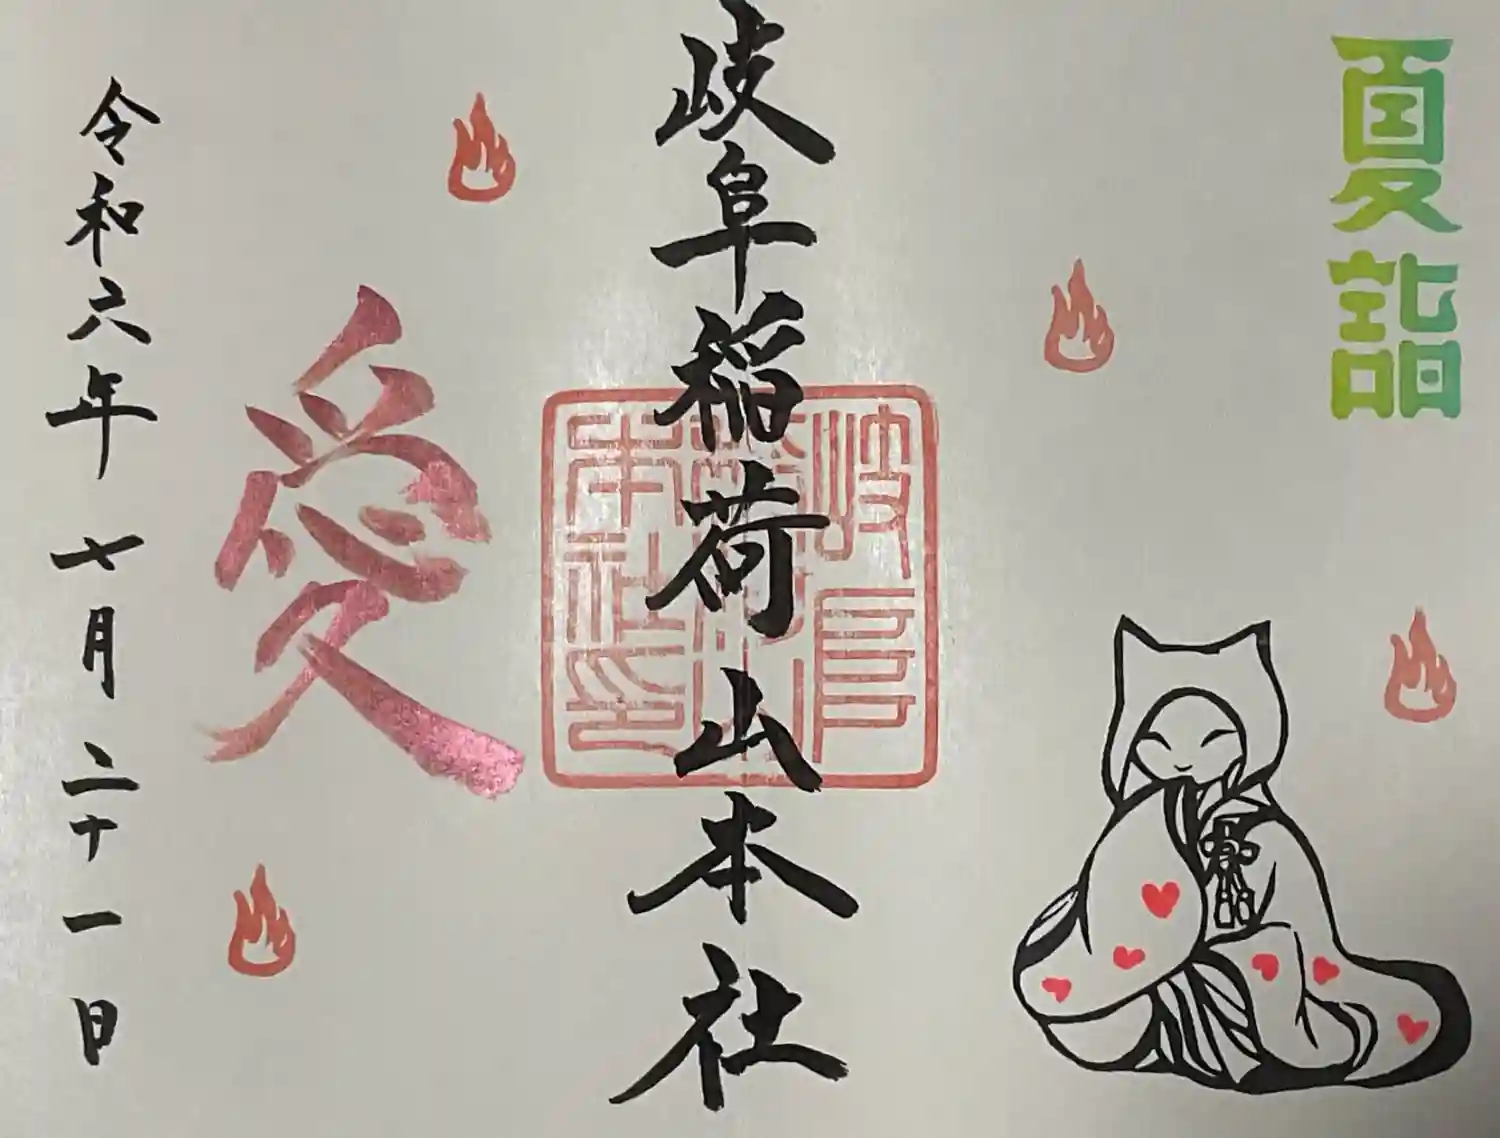 夏詣
岐阜稲荷山本社
岐阜
稲荷山
本社印
愛
令和六年 七月二十一日